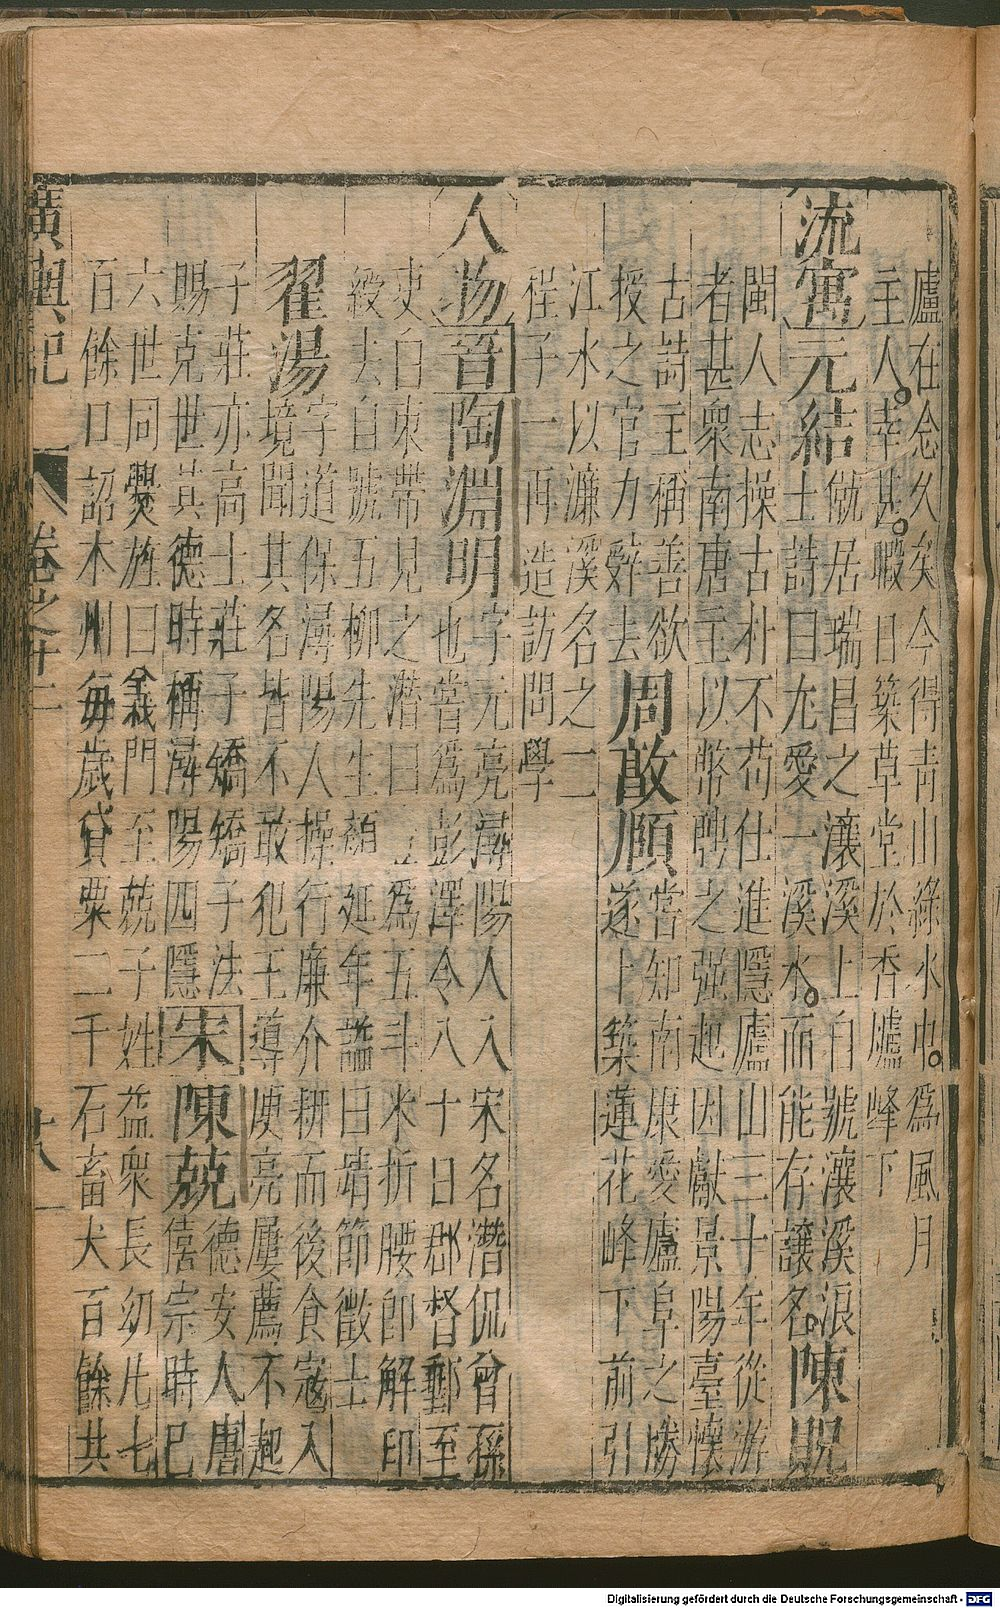 廬在念久矣今得青山綠水中爲風月
主人幸甚暇日築草堂於香爐峰下
流寓元結僦居瑞昌之瀼溪上自號瀼溪浪
士詩曰尤愛一溪水而能存讓名陳貺
閩人志操古朴不苟仕進隱廬山三十年從游
者甚衆南唐主以幣聘之强起因獻景陽臺懷
古詩主稱善欲
授之官力辭去周敦頤嘗知南康愛廬阜之勝
遂上築蓮花峰下前引
江水以濂溪名之二
程子一再造訪問學
人物晉陶淵明字元亮潯陽人入宋名潛侃曾孫
也嘗爲彭澤令八十日郡督郵至
吏白束帶見之潛曰豈爲五斗米折腰卽解印
綬去自號五柳先生顏延年諡曰靖節徵士
翟湯字道保潯陽人操行廉介耕而後食寇入
境聞其名皆不敢犯王導庾亮屢薦不起
子莊亦高士莊子矯矯子法
賜克世其德時稱潯陽四隱宋陳兢德安人唐
僖宗時已
六世同爨旌曰義門至兢子姓益衆長幼凡七
百餘口詔本州每歲貸粟二千石畜犬百餘共
廣輿記 卷之十二 廿八
Digitalisierung gefördert durch die Deutsche Forschungsgemeinschaft - DFG